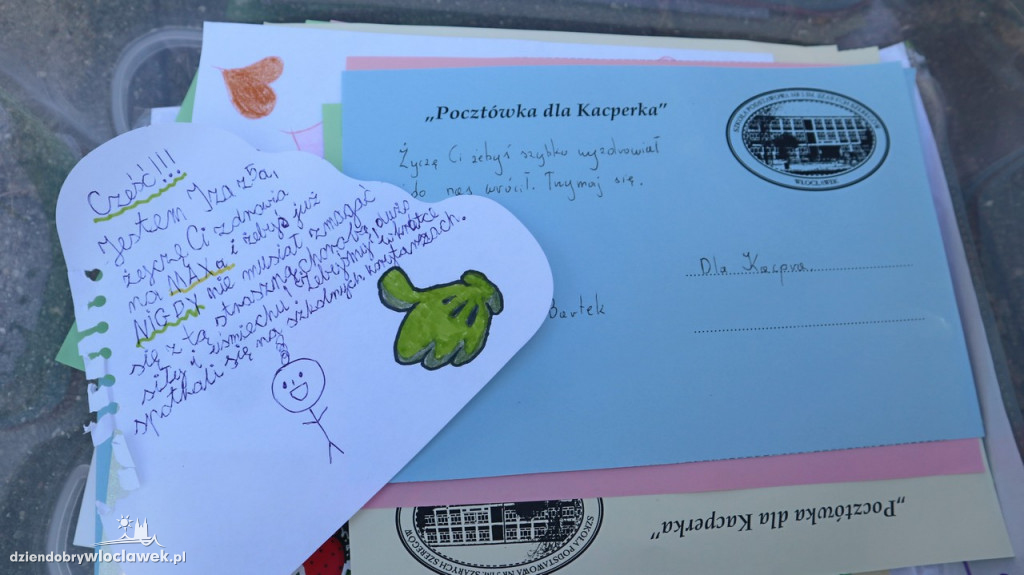 Cześć!!!
Jestem Iza z 5a,
życzę Ci zdrowia
na MAXa i żebyś już
NIGDY nie musiał zmagać
się z tą straszną chorobą, dużo
siły i uśmiechu! Żebyśmy wkrótce
spotkali się na szkolnych korytarzach.
„Pocztówka dla Kacperka”
Życzę Ci żebyś szybko wyzdrowiał
i do nas wrócił. Trzymaj się.
Bartek
Dla Kacpra
WŁOCŁAWEK
„Pocztówka dla Kacperka”
dziendobrywloclawek.pl